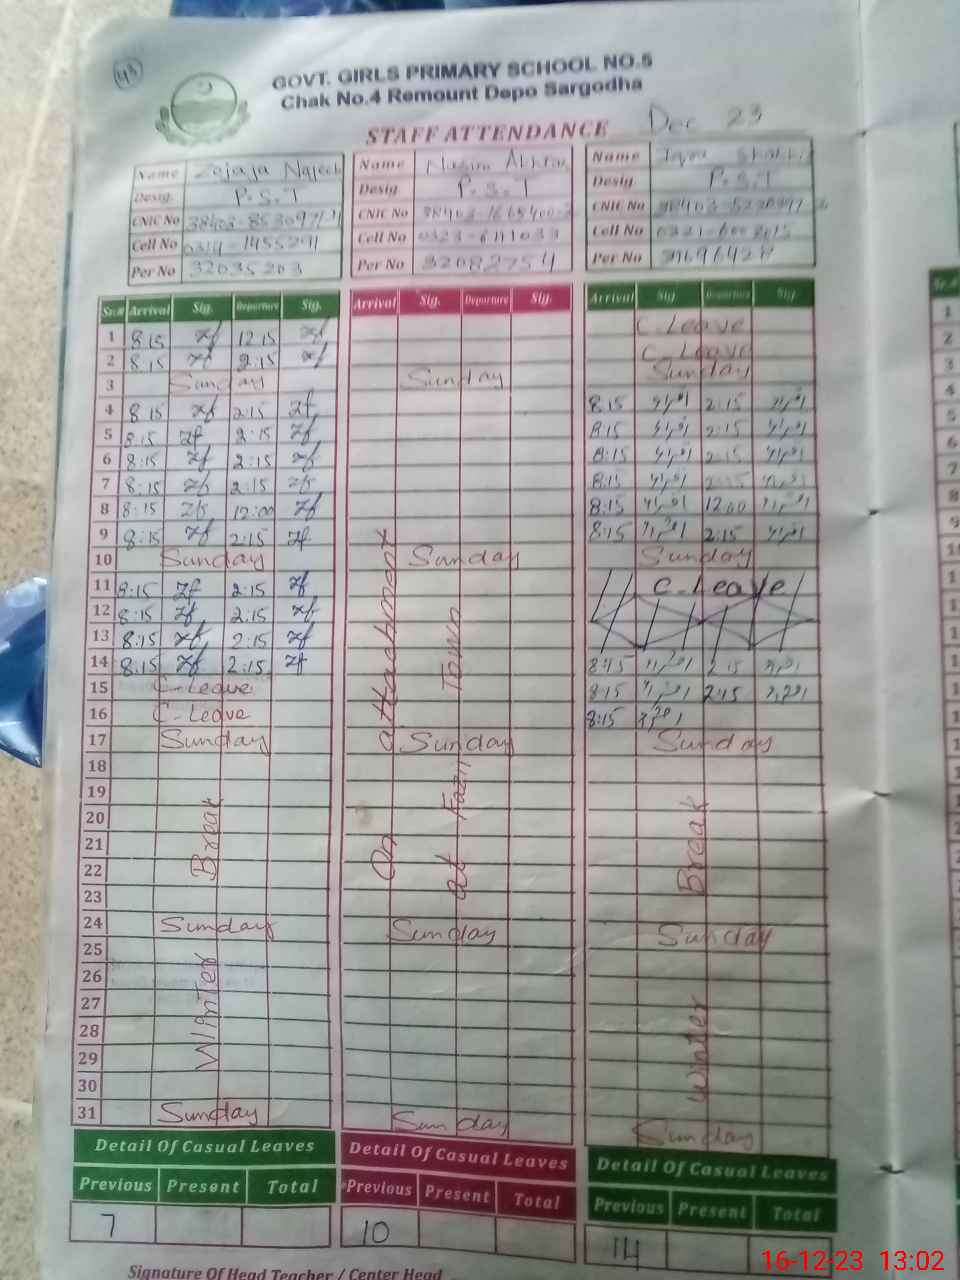 43
GOVT. GIRLS PRIMARY SCHOOL NO.5
Chak No.4 Remount Depo Sargodha
STAFF ATTENDANCE Dec 23
Name
Desig. P.S.T
CNIC No
Cell No 0314-1455291
Per No 32035203
Name Nasim Akhtar
Desig. P.S.T
CNIC No
Cell No 0323-6111033
Per No 32082754
Name Iqra
Desig. P.S.T
CNIC No
Cell No
Per No
Sr.# Arrival Sig. Departure Sig. Arrival Sig. Departure Sig. Arrival Sig Departure Sig
1 8:15 zf 12:15 zf C-Leave
2 8:15 zf 2:15 zf C-Leave
3 Sunday Sunday Sunday
4 8:15 zf 2:15 zf 8:15 اقراء 2:15 اقراء
5 8:15 zf 2:15 zf 8:15 اقراء 2:15 اقراء
6 8:15 zf 2:15 zf 8:15 اقراء 2:15 اقراء
7 8:15 zf 2:15 zf 8:15 اقراء 2:15 اقراء
8 8:15 zf 12:00 zf 8:15 اقراء 12:00 اقراء
9 8:15 zf 2:15 zf 8:15 اقراء 2:15 اقراء
10 Sunday Sunday Sunday
11 8:15 zf 2:15 zf C-Leave
12 8:15 zf 2:15 zf
13 8:15 zf 2:15 zf
14 8:15 zf 2:15 zf 8:15 اقراء 2:15 اقراء
15 C-Leave 8:15 اقراء 2:15 اقراء
16 C-Leave 8:15 اقراء
17 Sunday Sunday Sunday
18
19
20
21
22
23
24 Sunday Sunday Sunday
25
26
27
28
29
30
31 Sunday Sunday Sunday
Winter Break
On attachment
at Town
Winter Break
Detail Of Casual Leaves Detail Of Casual Leaves Detail Of Casual Leaves
Previous Present Total Previous Present Total Previous Present Total
7 10 14
Signature Of Head Teacher / Center Head
16-12-23 13:02